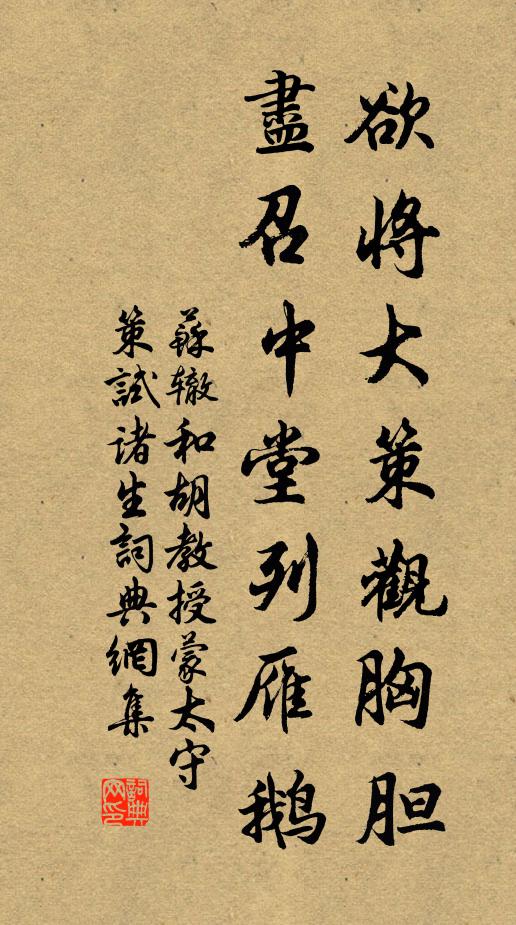 欲将大策觀胸胆
盡召中堂列雁鹅
蘇辙和胡教授蒙太守
策試诸生詞典網集
詞典
网印